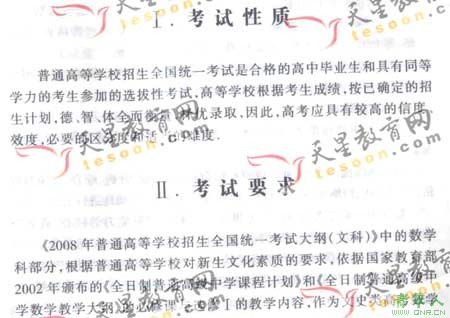 Ⅰ. 考试性质
普通高等学校招生全国统一考试是合格的高中毕业生和具有同等
学力的考生参加的选拔性考试,高等学校根据考生成绩,按已确定的招
生计划,德、智、体全面衡量,择优录取,因此,高考应具有较高的信度、
效度,必要的区分度和适当的难度.
Ⅱ. 考试要求
《2008年普通高等学校招生全国统一考试大纲(文科)》中的数学
科部分,根据普通高等学校对新生文化素质的要求,依据国家教育部
2002年颁布的《全日制普通高级中学课程计划》和《全日制普通高级中
学数学教学大纲》的必修课与选修Ⅰ的教学内容,作为文史类高考数学
天星教育网
tesoon.com
天星教育网
tesoon.com
天星教育网
tesoon.com